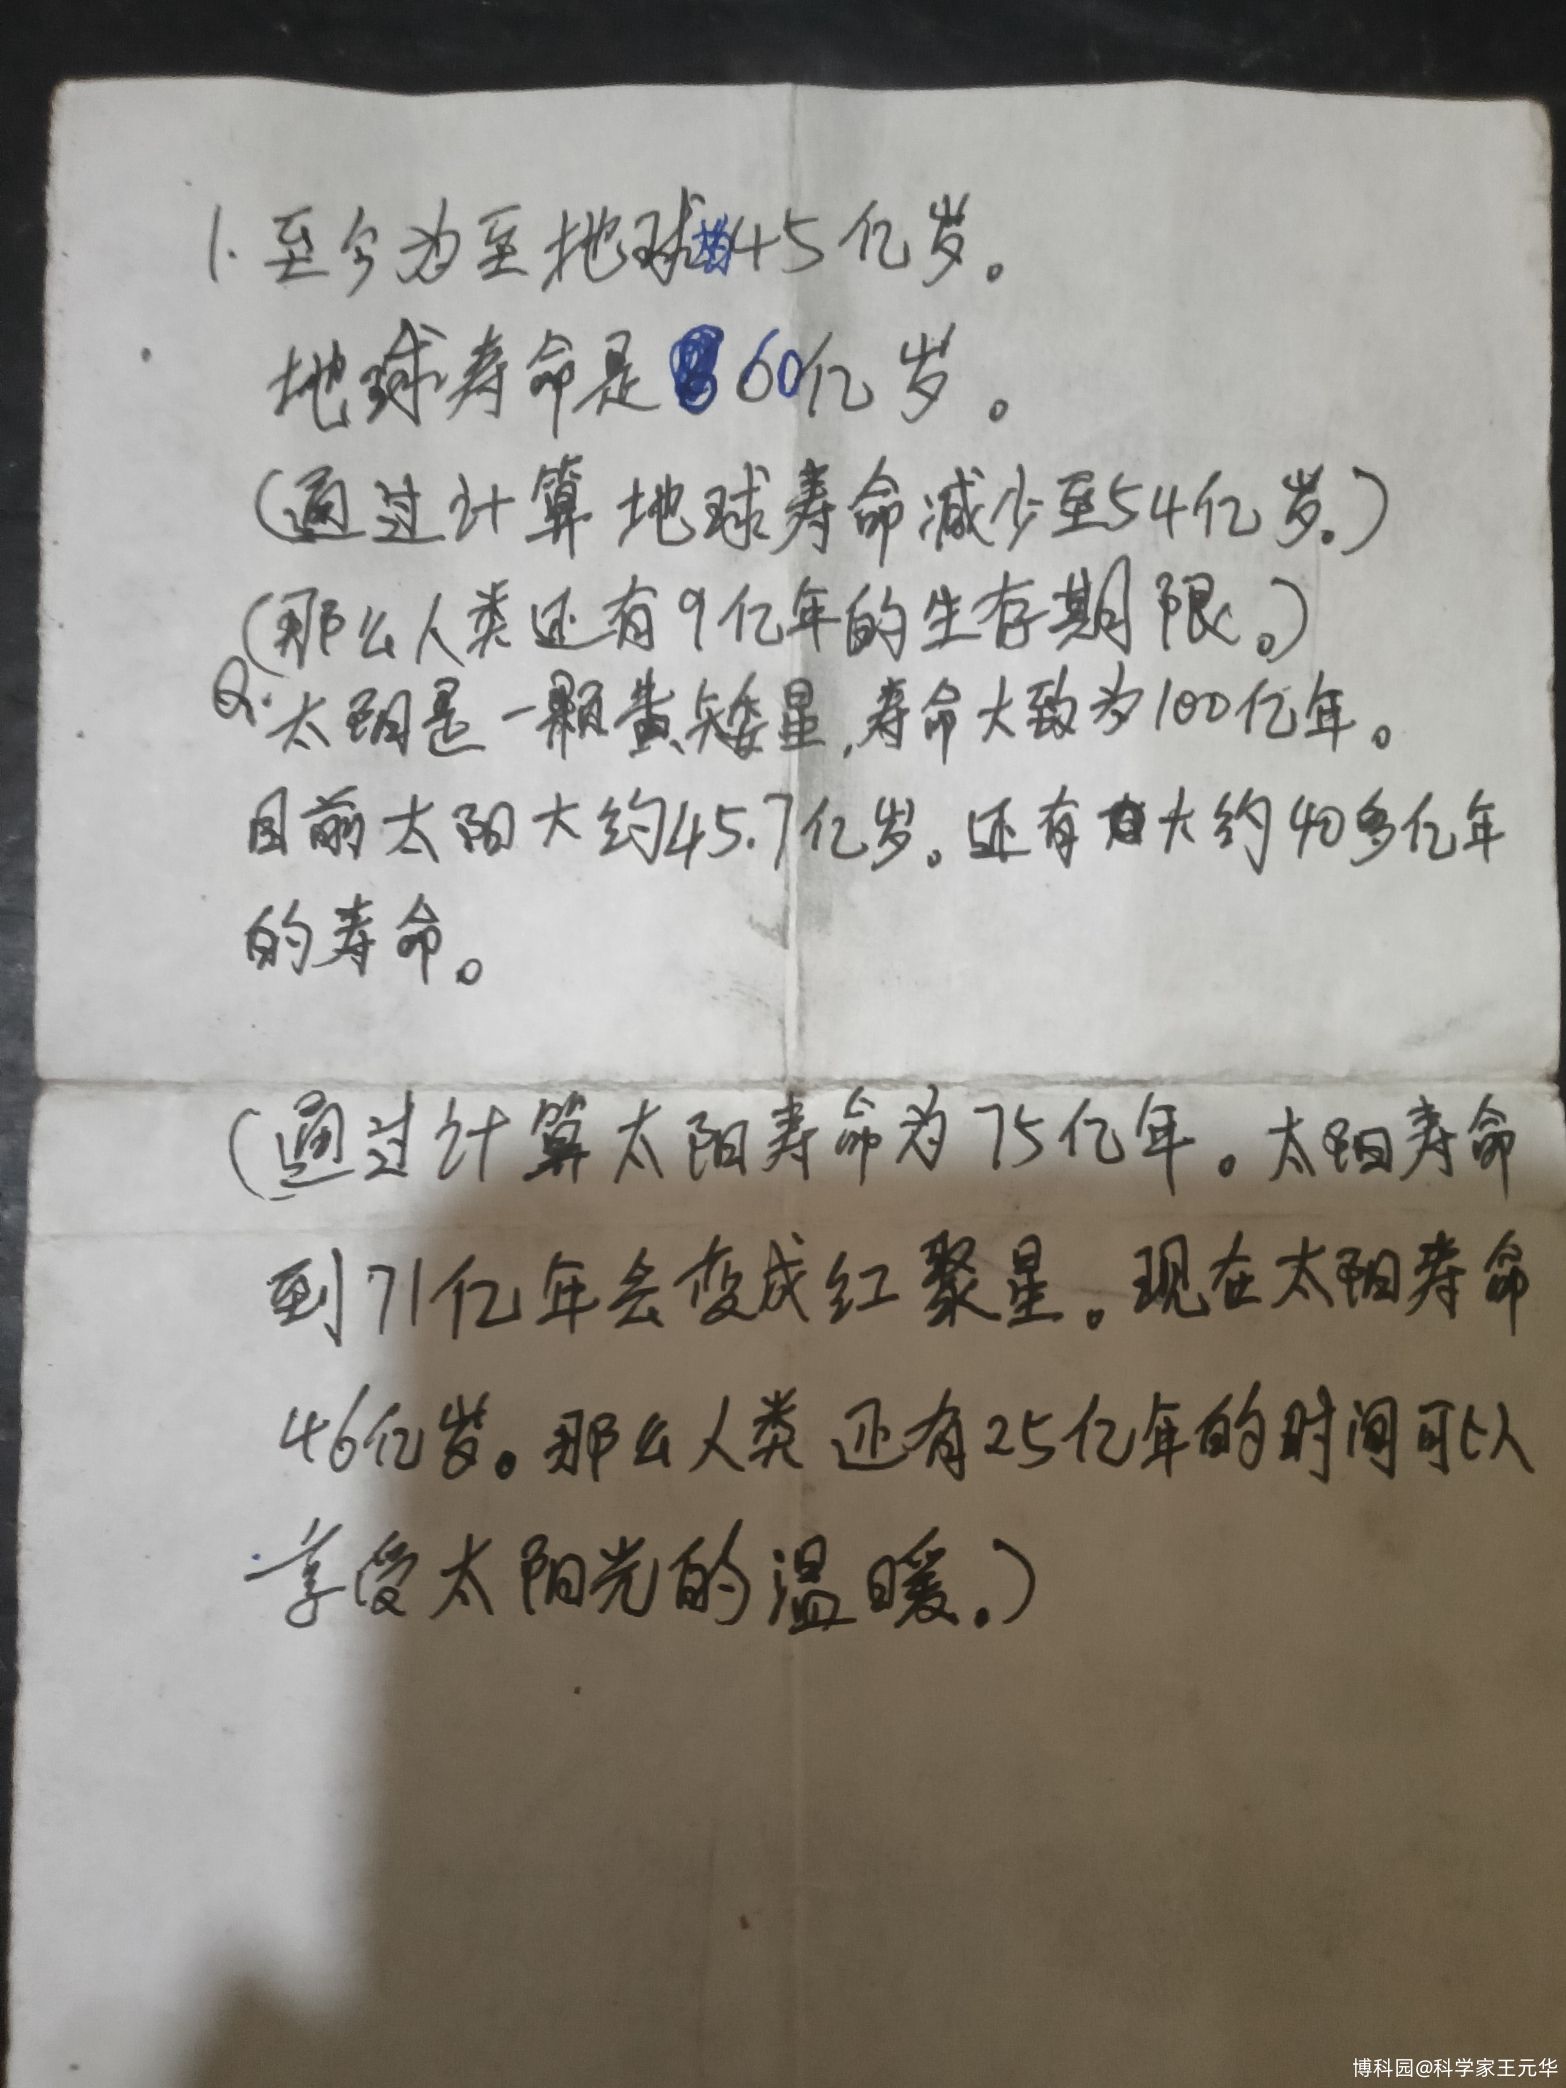 1.至今为至地球为45亿岁。
地球寿命是60亿岁。
(通过计算地球寿命减少至54亿岁。)
(那么人类还有9亿年的生存期限。)
2.太阳是一颗黄矮星,寿命大致为100亿年。
目前太阳大约45.7亿岁。还有大约40多亿年
的寿命。
(通过计算太阳寿命为75亿年。太阳寿命
到71亿年会变成红聚星。现在太阳寿命
46亿岁。那么人类还有25亿年的时间可以
享受太阳光的温暖。)
博科园@科学家王元华